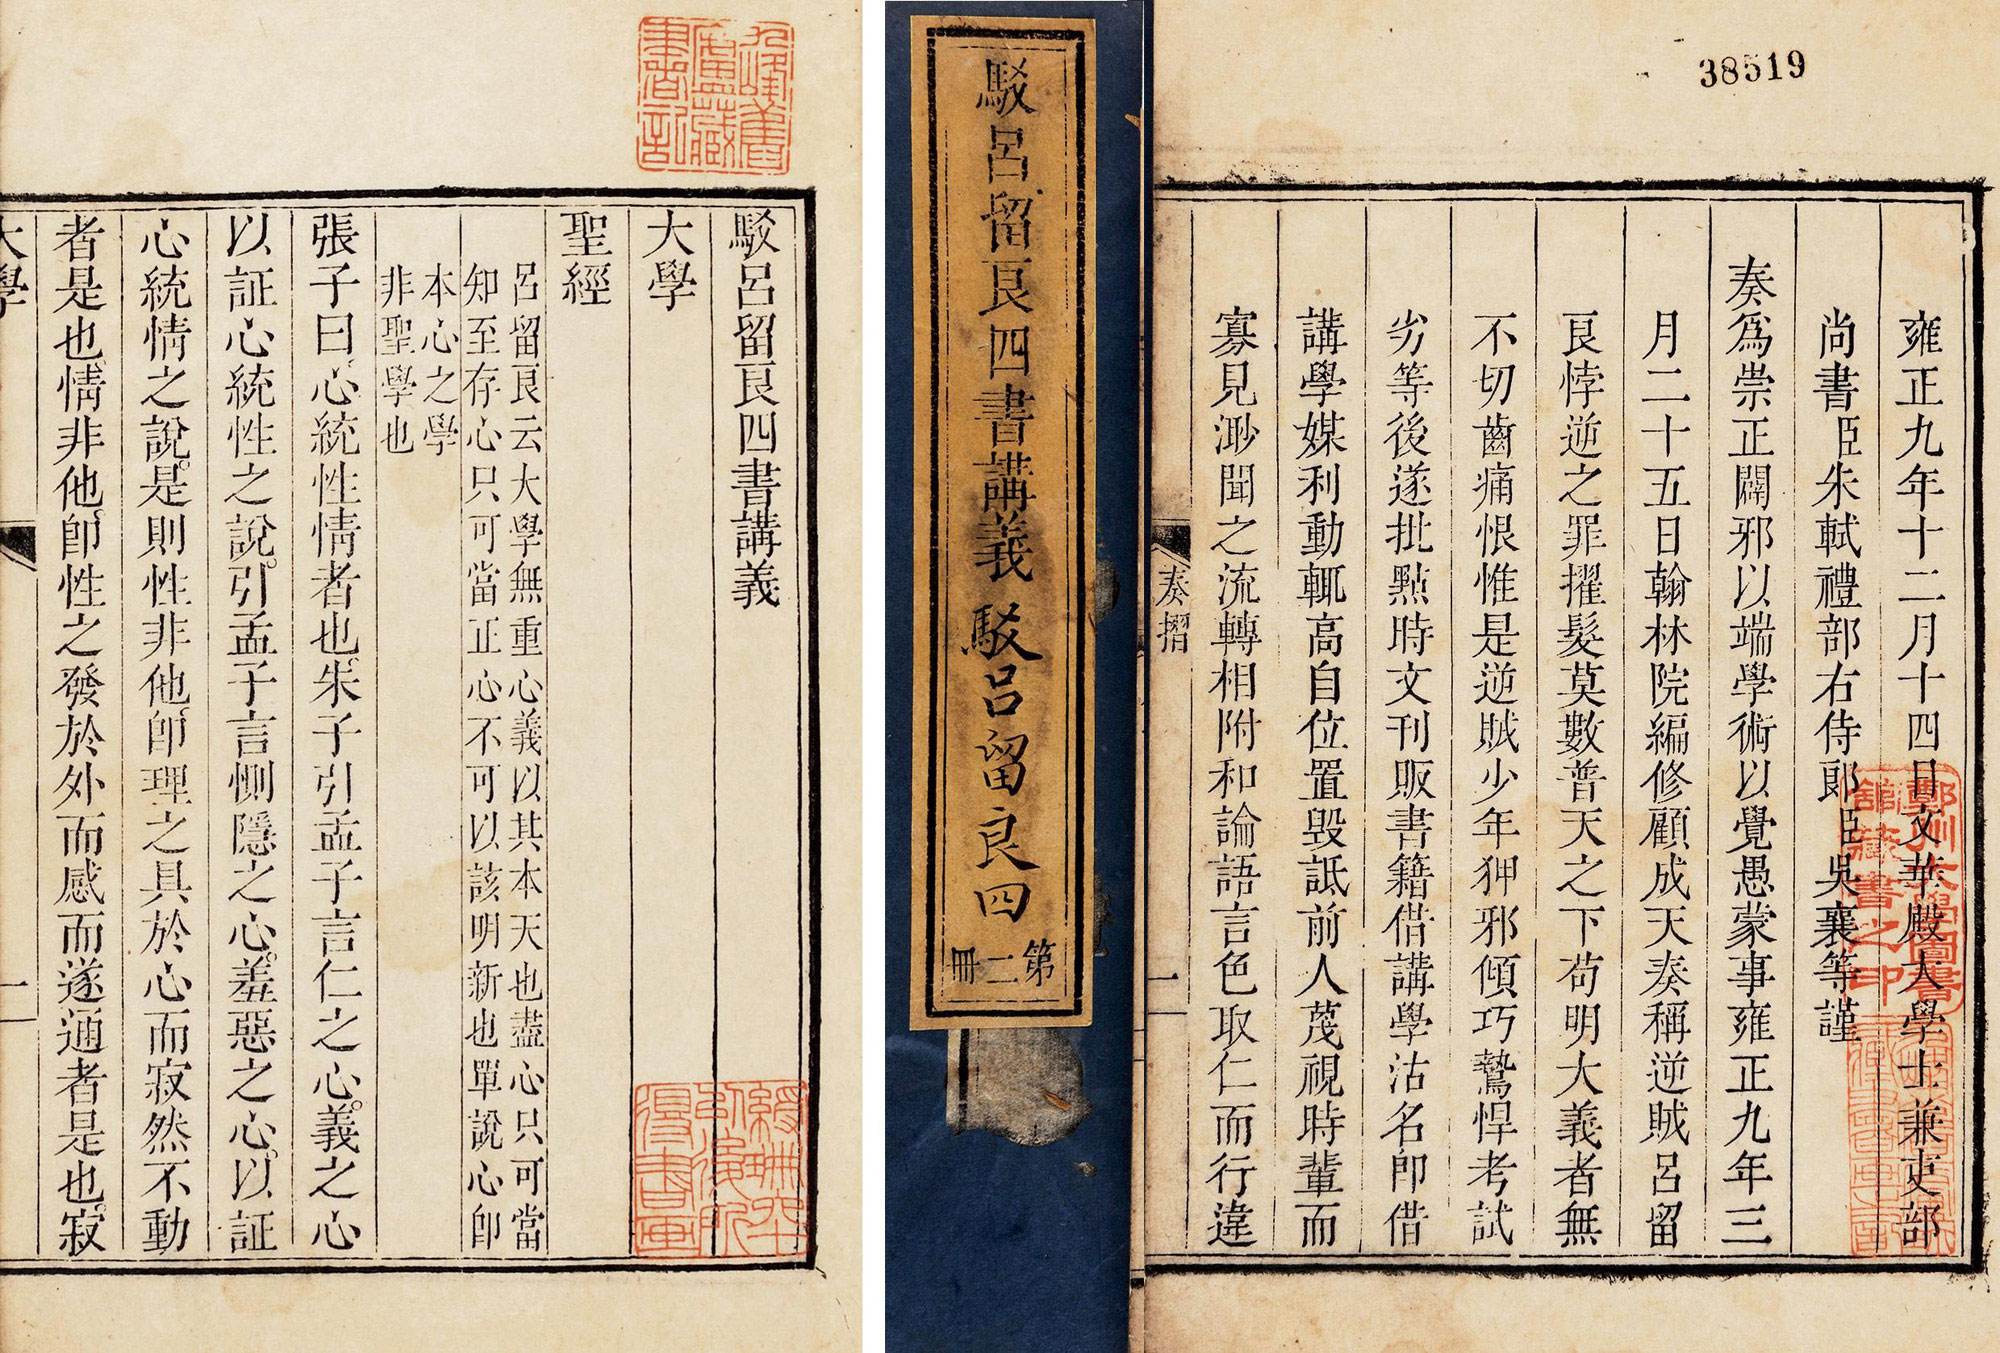 九峰舊廬藏書記
駁呂留良四書講義
大學
聖經
呂留良云大學無重心義以其本天也盡心只可當
知至存心只可當正心不可以該明新也單說心卽
本心之學
非聖學也
張子曰心統性情者也朱子引孟子言仁之心義之心
以証心統性之說引孟子言惻隱之心羞惡之心以証
心統情之說是則性非他卽理之具於心而寂然不動
者是也情非他卽性之發於外而感而遂通者是也寂
大學
一
綬珊六十以後所得書畫
駁呂留良四書講義 駁呂留良四
第二冊
38519
雍正九年十二月十四日文華殿大學士兼吏部
尚書臣朱軾禮部右侍郎臣吳襄等謹
奏爲崇正闢邪以端學術以覺愚蒙事雍正九年三
月二十五日翰林院編修顧成天奏稱逆賊呂留
良悖逆之罪擢髮莫數普天之下苟明大義者無
不切齒痛恨惟是逆賊少年狎邪傾巧鷙悍考試
劣等後遂批點時文刊販書籍借講學沽名卽借
講學媒利動輒高自位置毀詆前人蔑視時輩而
寡見渺聞之流轉相附和論語言色取仁而行違
奏摺
一
鄭州大學圖書館藏書之印